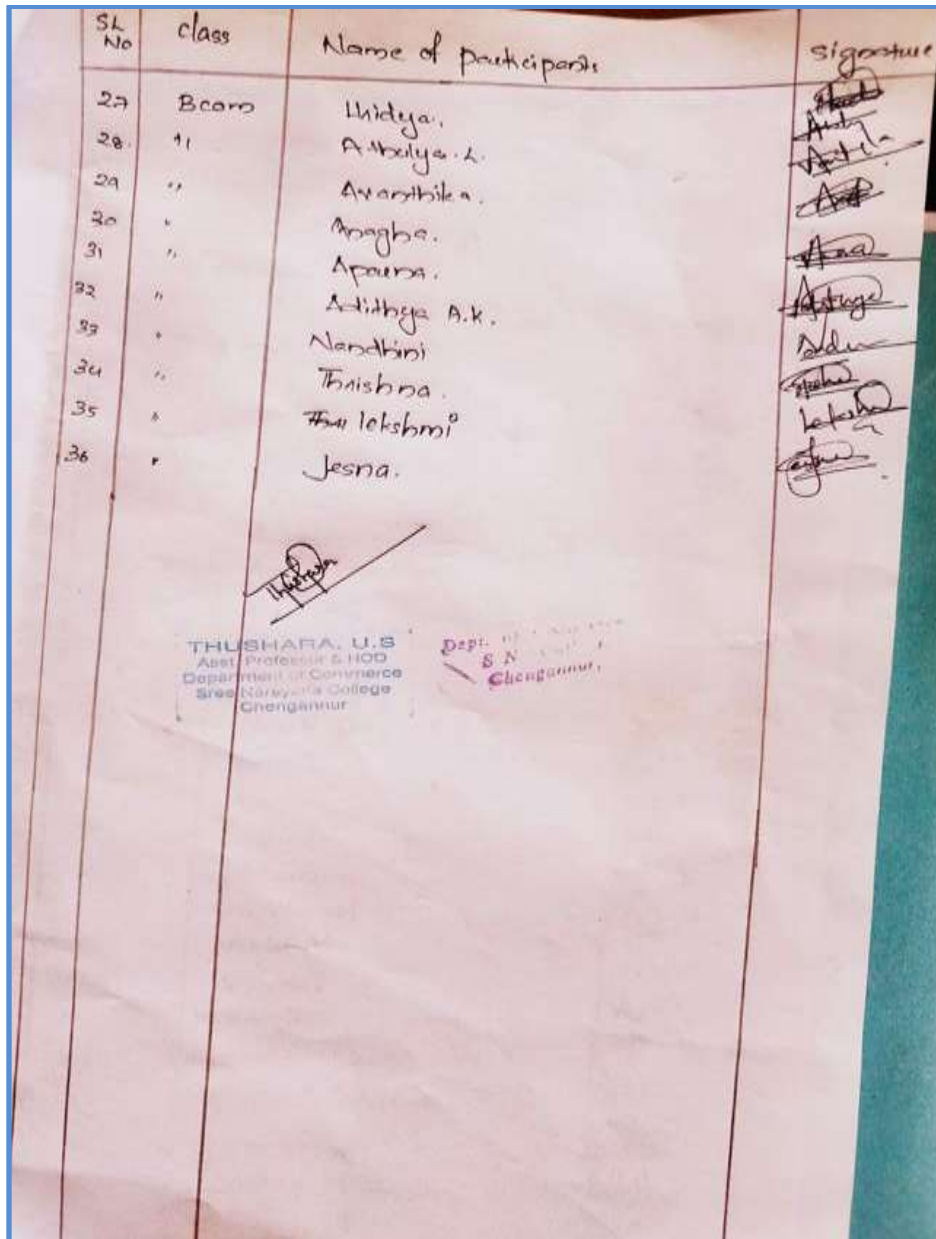 SL No class Name of participants signature
27 Bcom Hridya.
28. 11 Athulya. L.
29 " Avanthika.
30 " Anagha.
31 " Aparna.
32 " Adithya A.K.
33 " Nandhini
34 " Thrishna.
35 " lekshmi Leksh
36 " Jesna.
THUSHARA, U.S
Asst. Professor & HOD
Department of Commerce
Sree Narayana College
Chengannur
Dept.
S N
Chengannur,